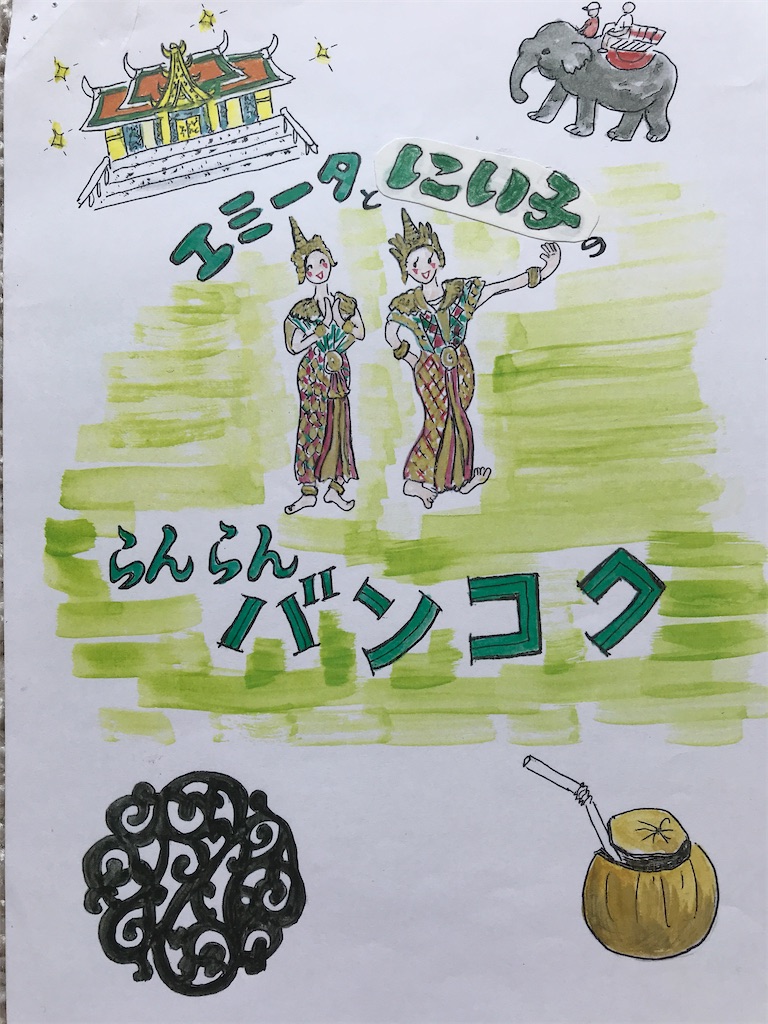 エミータとにい子の
らんらん
バンコク